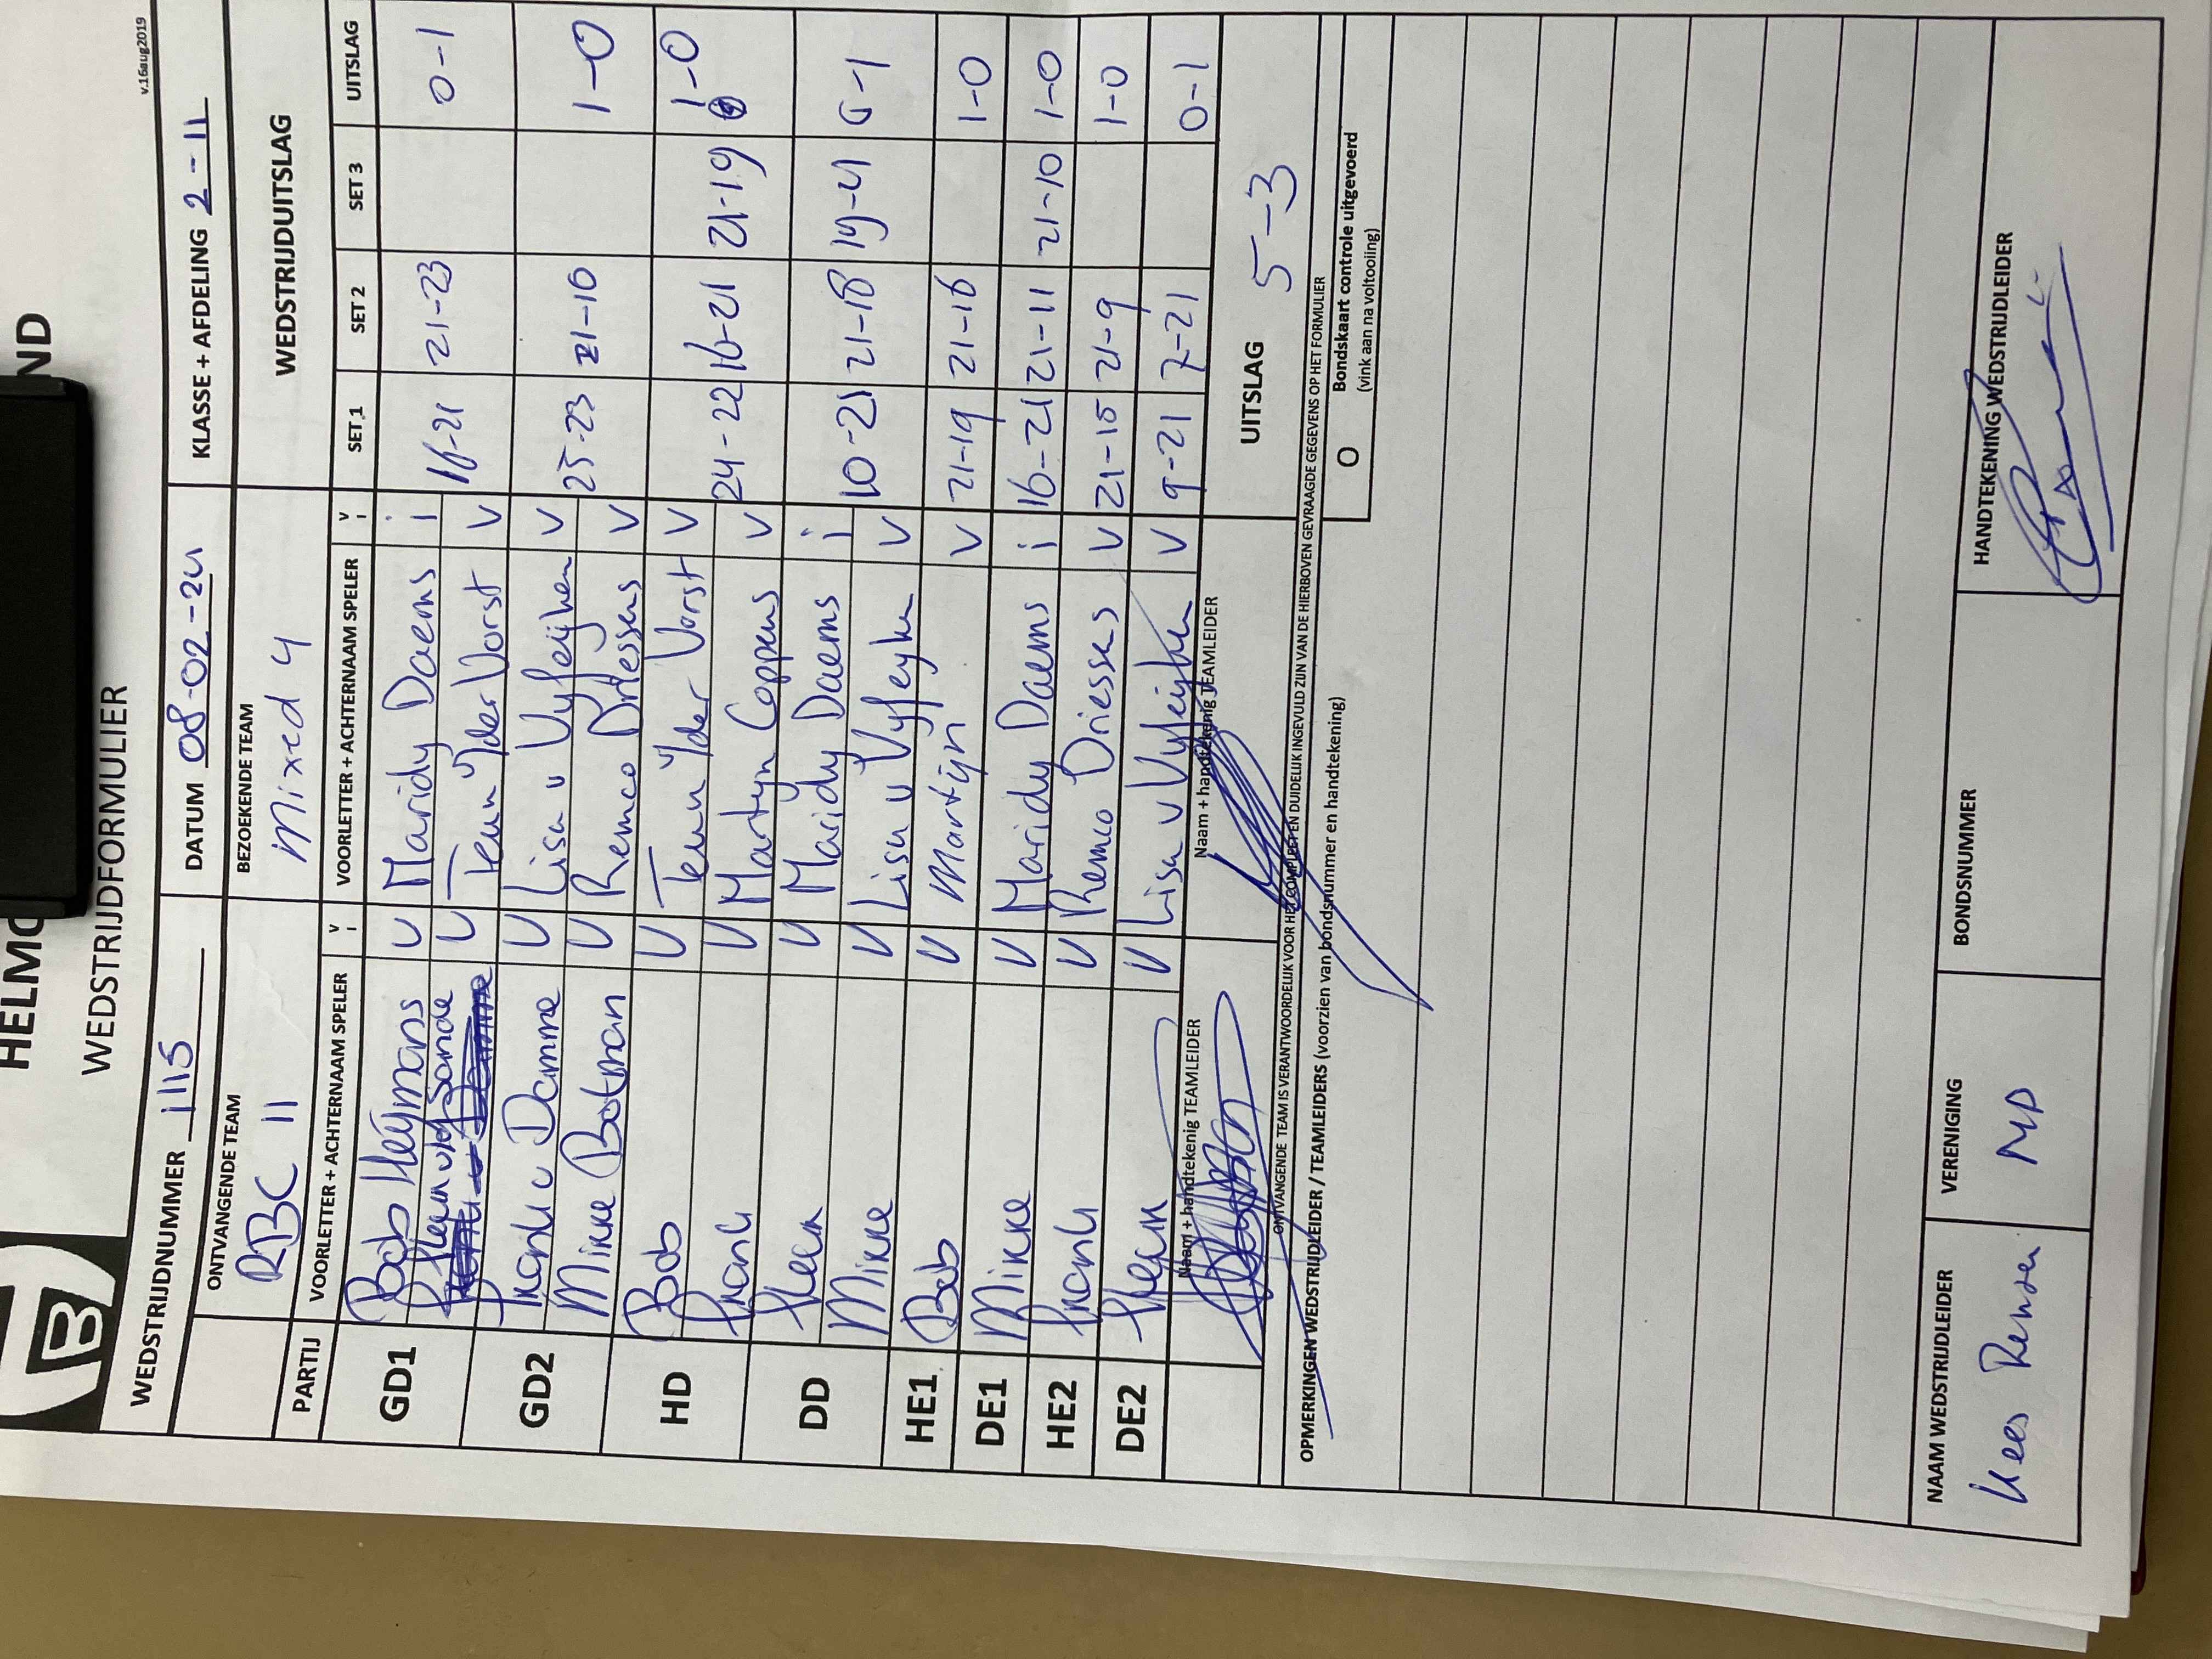 HELMO ND
WEDSTRIJDFORMULIER
v.16aug2019
B
WEDSTRIJDNUMMER 1115 DATUM 08-02-24 KLASSE + AFDELING 2-11
ONTVANGENDE TEAM BEZOEKENDE TEAM WEDSTRIJDUITSLAG
RBC 11 Mixed 4
PARTIJ VOORLETTER + ACHTERNAAM SPELER V I VOORLETTER + ACHTERNAAM SPELER V I SET 1 SET 2 SET 3 UITSLAG
GD1 Bob Heijmans V Maridy Daems i 16-21 21-23 0-1
vd Sande V Teun v der Vorst V
GD2 Frank v Damme V Lisa v Vyfeijken V 25-23 21-10 1-0
Minke Botman V Remco Driessens V
HD Bob V Teun v der Vorst V 24-22 16-21 21-19 1-0
Frank V Martyn Coppens V
DD V Maridy Daems i 10-21 21-18 19-21 0-1
Minke V Lisa v Vyfeyken V
HE1 Bob V Martijn V 21-19 21-16 1-0
DE1 Minke V Maridy Daems i 16-21 21-11 21-10 1-0
HE2 Frank V Remco Driessens V 21-15 21-9 1-0
DE2 V Lisa v Vyfeijken V 9-21 7-21 0-1
Naam + handtekenig TEAMLEIDER Naam + handtekenig TEAMLEIDER UITSLAG 5-3
ONTVANGENDE TEAM IS VERANTWOORDELIJK VOOR HET COMPLEET EN DUIDELIJK INGEVULD ZIJN VAN DE HIERBOVEN GEVRAAGDE GEGEVENS OP HET FORMULIER
OPMERKINGEN WEDSTRIJDLEIDER / TEAMLEIDERS (voorzien van bondsnummer en handtekening) O Bondskaart controle uitgevoerd
(vink aan na voltooiing)
NAAM WEDSTRIJDLEIDER VERENIGING BONDSNUMMER HANDTEKENING WEDSTRIJDLEIDER
Kees MP